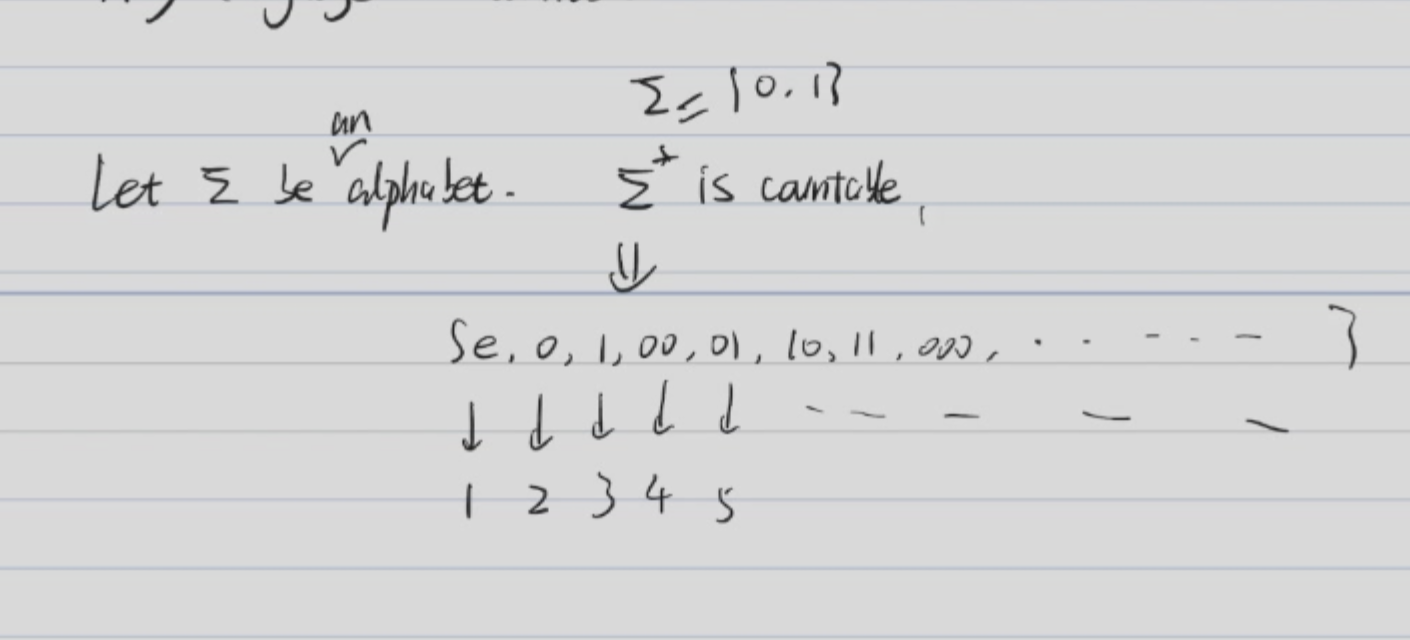 Σ = {0, 1}
an
Let Σ be alphabet. Σ* is countable,
⇓
{e, 0, 1, 00, 01, 10, 11, 000, . . - . - }
↓ ↓ ↓ ↓ ↓ - - - - -
1 2 3 4 5